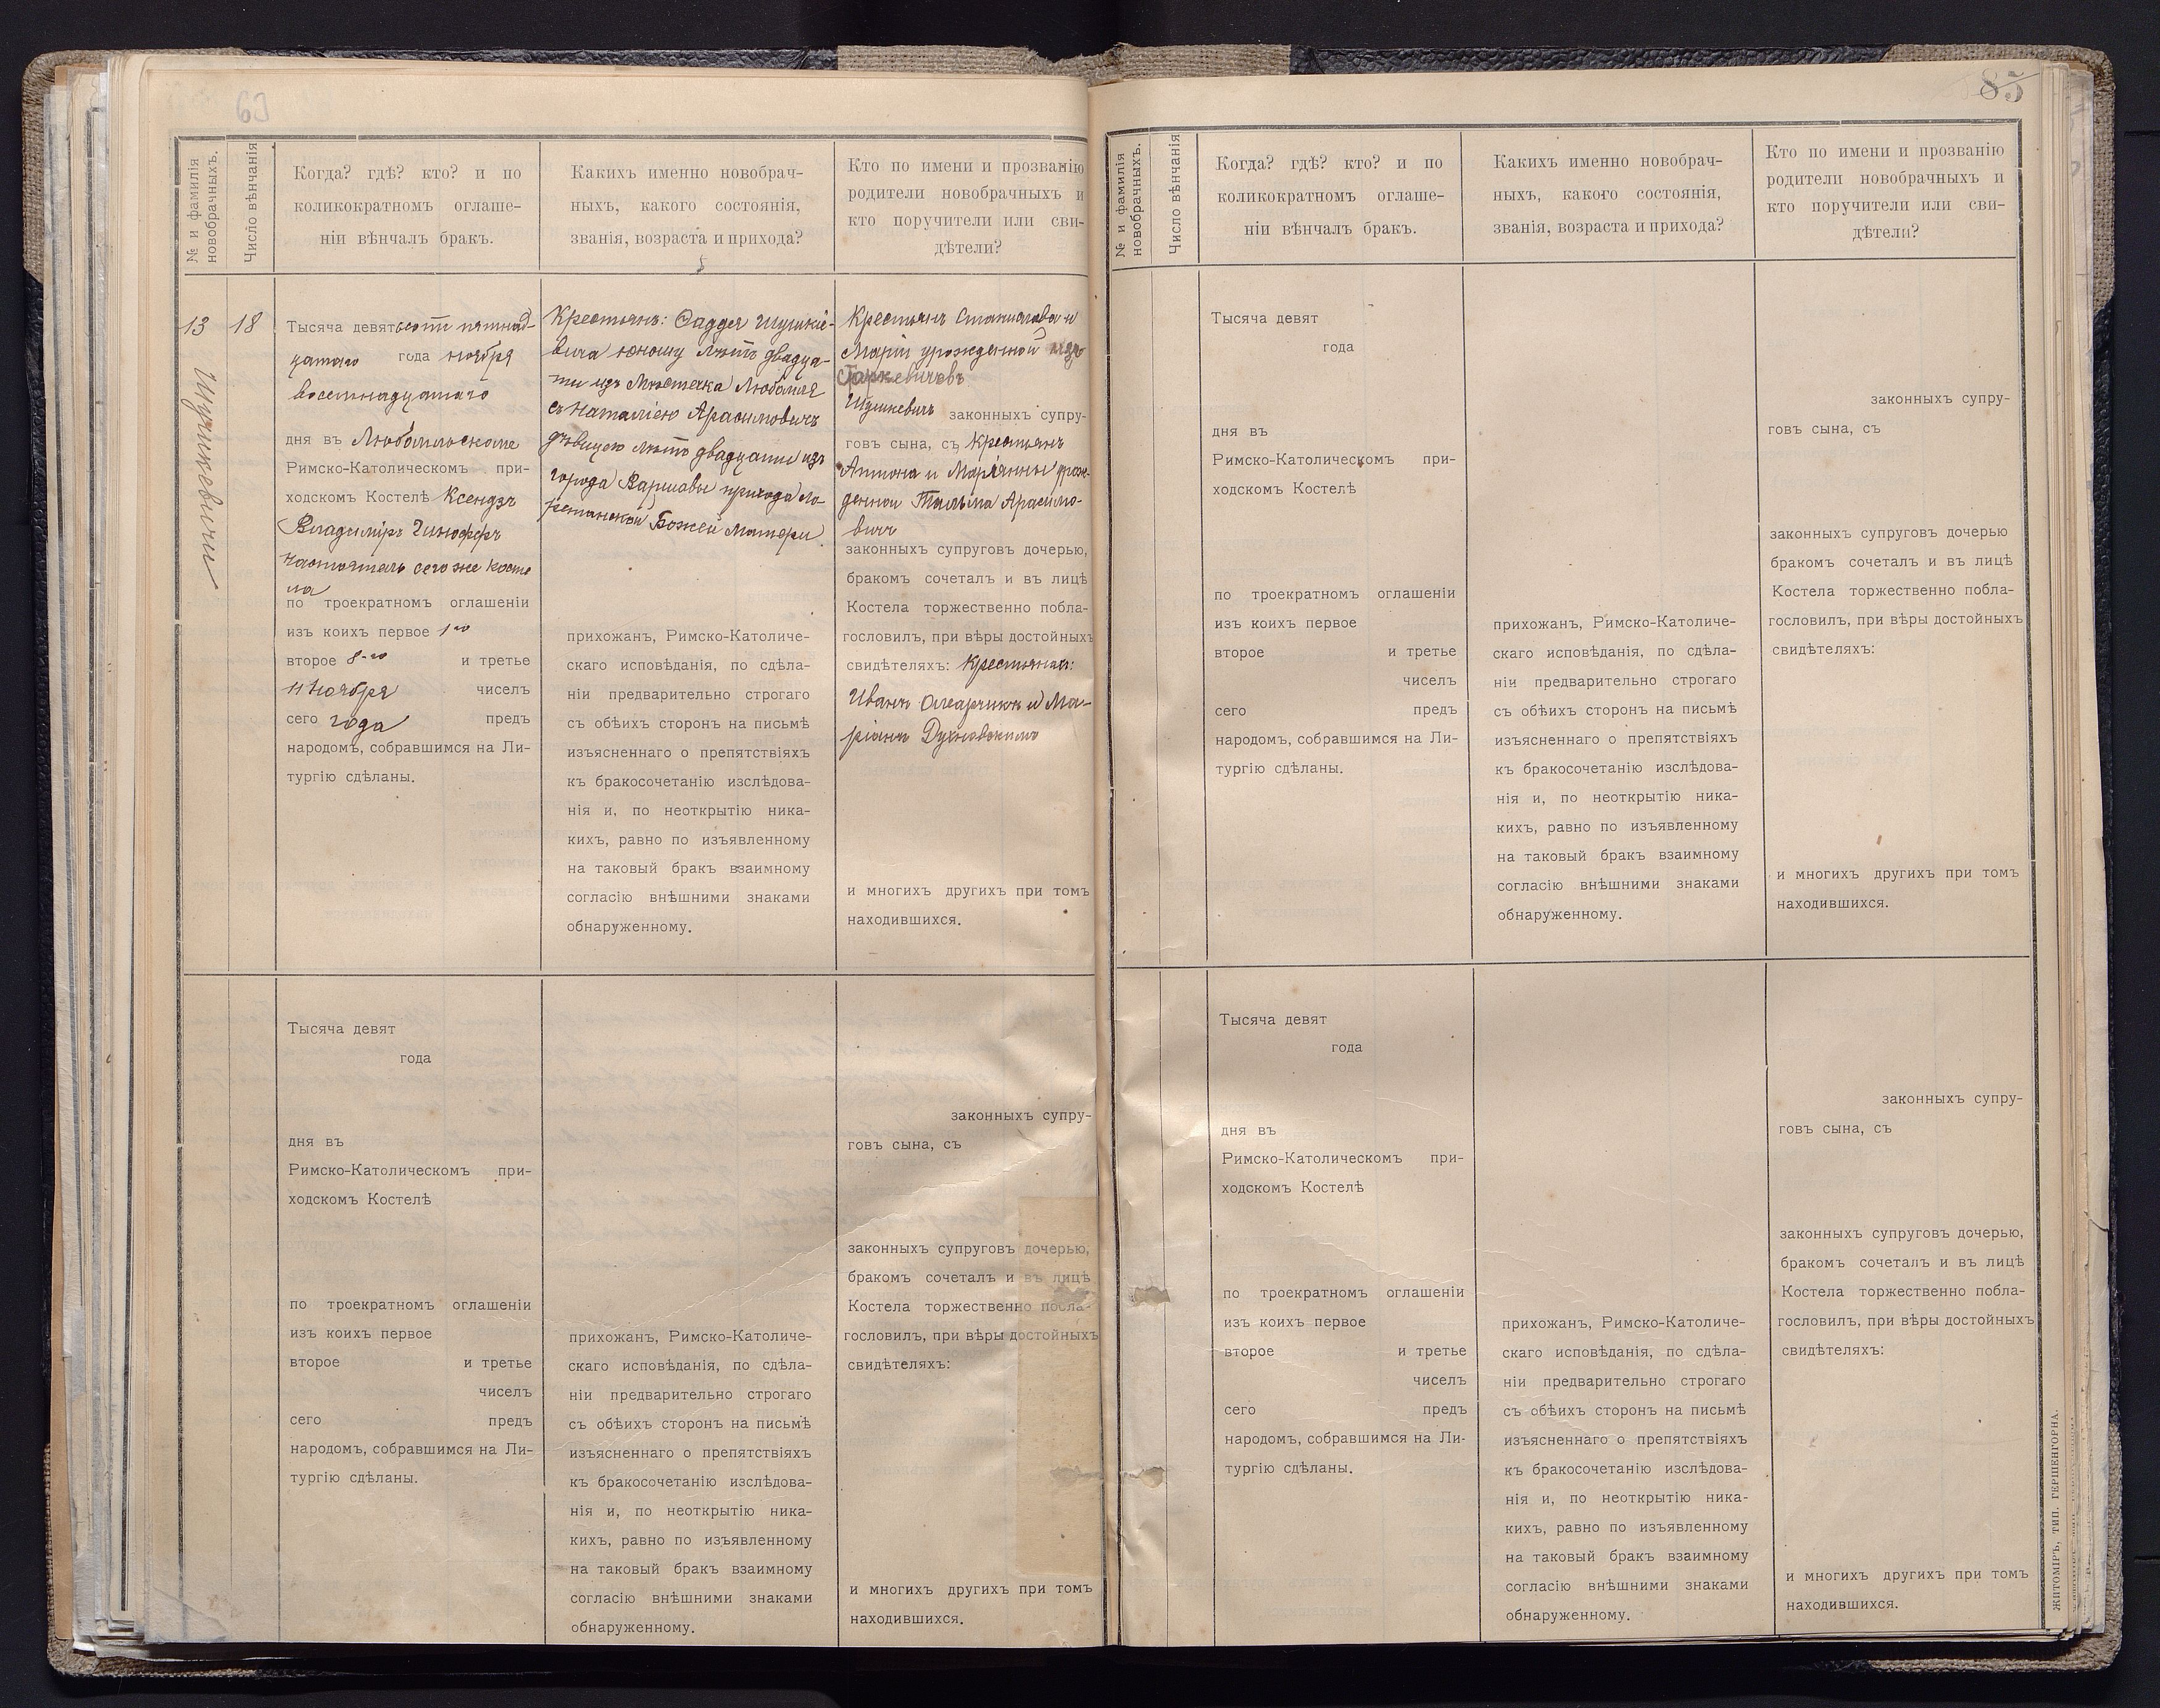 63
№ и фамилія новобрачныхъ.
Число вѣнчанія
Когда? гдѣ? кто? и по
коликократномъ оглаше-
ніи вѣнчалъ бракъ.
Какихъ именно новобрач-
ныхъ, какого состоянія,
званія, возраста и прихода?
Кто по имени и прозванію
родители новобрачныхъ и
кто поручители или сви-
дѣтели?
13
18
Тысяча девятьсотъ пятнад-
цатаго года ноября
восемнадцатаго
дня въ Любомльскомъ
Римско-Католическомъ при-
ходскомъ Костелѣ Ксендзъ
Владиміръ
настоятель сего же косте
ла
по троекратномъ оглашеніи
изъ коихъ первое 1-го
второе 8-го и третье
11 Ноября чиселъ
сего года предъ
народомъ, собравшимся на Ли-
тургію сдѣланы.
Крестьянъ: Фаддея Шушке-
вича юношу лѣтъ двадца-
ти изъ мѣстечка Любомля
съ Наталіею Арасимовичъ
дѣвицею лѣтъ двадцати изъ
города Варшавы прихода Ло-
ретанской Божей Матери
прихожанъ, Римско-Католиче-
скаго исповѣданія, по сдѣла-
ніи предварительно строгаго
съ обѣихъ сторонъ на письмѣ
изъясненнаго о препятствіяхъ
къ бракосочетанію изслѣдова-
нія и, по неоткрытію ника-
кихъ, равно по изъявленному
на таковый бракъ взаимному
согласію внѣшними знаками
обнаруженному.
Крестьянъ Станислава и
Маріи урожденной изъ
Шушкевичъ законныхъ супру-
говъ сына, съ Крестьянъ
Антона и Маріанны урож-
денной Тальма Арасимо-
вичъ
законныхъ супруговъ дочерью,
бракомъ сочеталъ и въ лицѣ
Костела торжественно побла-
гословилъ, при вѣры достойныхъ
свидѣтеляхъ: Крестьянах:
Иванъ Олеарчикъ и Ма-
ріанъ Духновскимъ
и многихъ другихъ при томъ
находившихся.
Тысяча девят
года
дня въ
Римско-Католическомъ при-
ходскомъ Костелѣ
по троекратномъ оглашеніи
изъ коихъ первое
второе и третье
чиселъ
сего предъ
народомъ, собравшимся на Ли-
тургію сдѣланы.
прихожанъ, Римско-Католиче-
скаго исповѣданія, по сдѣла-
ніи предварительно строгаго
съ обѣихъ сторонъ на письмѣ
изъясненнаго о препятствіяхъ
къ бракосочетанію изслѣдова-
нія и, по неоткрытію ника-
кихъ, равно по изъявленному
на таковый бракъ взаимному
согласію внѣшними знаками
обнаруженному.
законныхъ супру-
говъ сына, съ
законныхъ супруговъ дочерью,
бракомъ сочеталъ и въ лицѣ
Костела торжественно побла-
гословилъ, при вѣры достойныхъ
свидѣтеляхъ:
и многихъ другихъ при томъ
находившихся.
85
№ и фамилія новобрачныхъ.
Число вѣнчанія
Когда? гдѣ? кто? и по
коликократномъ оглаше-
ніи вѣнчалъ бракъ.
Какихъ именно новобрач-
ныхъ, какого состоянія,
званія, возраста и прихода?
Кто по имени и прозванію
родители новобрачныхъ и
кто поручители или сви-
дѣтели?
Тысяча девят
года
дня въ
Римско-Католическомъ при-
ходскомъ Костелѣ
по троекратномъ оглашеніи
изъ коихъ первое
второе и третье
чиселъ
сего предъ
народомъ, собравшимся на Ли-
тургію сдѣланы.
прихожанъ, Римско-Католиче-
скаго исповѣданія, по сдѣла-
ніи предварительно строгаго
съ обѣихъ сторонъ на письмѣ
изъясненнаго о препятствіяхъ
къ бракосочетанію изслѣдова-
нія и, по неоткрытію ника-
кихъ, равно по изъявленному
на таковый бракъ взаимному
согласію внѣшними знаками
обнаруженному.
законныхъ супру-
говъ сына, съ
законныхъ супруговъ дочерью
бракомъ сочеталъ и въ лицѣ
Костела торжественно побла-
гословилъ, при вѣры достойныхъ
свидѣтеляхъ:
и многихъ другихъ при томъ
находившихся.
Тысяча девят
года
дня въ
Римско-Католическомъ при-
ходскомъ Костелѣ
по троекратномъ оглашеніи
изъ коихъ первое
второе и третье
чиселъ
сего предъ
народомъ, собравшимся на Ли-
тургію сдѣланы.
прихожанъ, Римско-Католиче-
скаго исповѣданія, по сдѣла-
ніи предварительно строгаго
съ обѣихъ сторонъ на письмѣ
изъясненнаго о препятствіяхъ
къ бракосочетанію изслѣдова-
нія и, по неоткрытію ника-
кихъ, равно по изъявленному
на таковый бракъ взаимному
согласію внѣшними знаками
обнаруженному.
законныхъ супру-
говъ сына, съ
законныхъ супруговъ дочерью,
бракомъ сочеталъ и въ лицѣ
Костела торжественно побла-
гословилъ, при вѣры достойныхъ
свидѣтеляхъ:
и многихъ другихъ при томъ
находившихся.
ЖИТОМІРЪ, ТИП. ГЕРШЕНГОРНА.